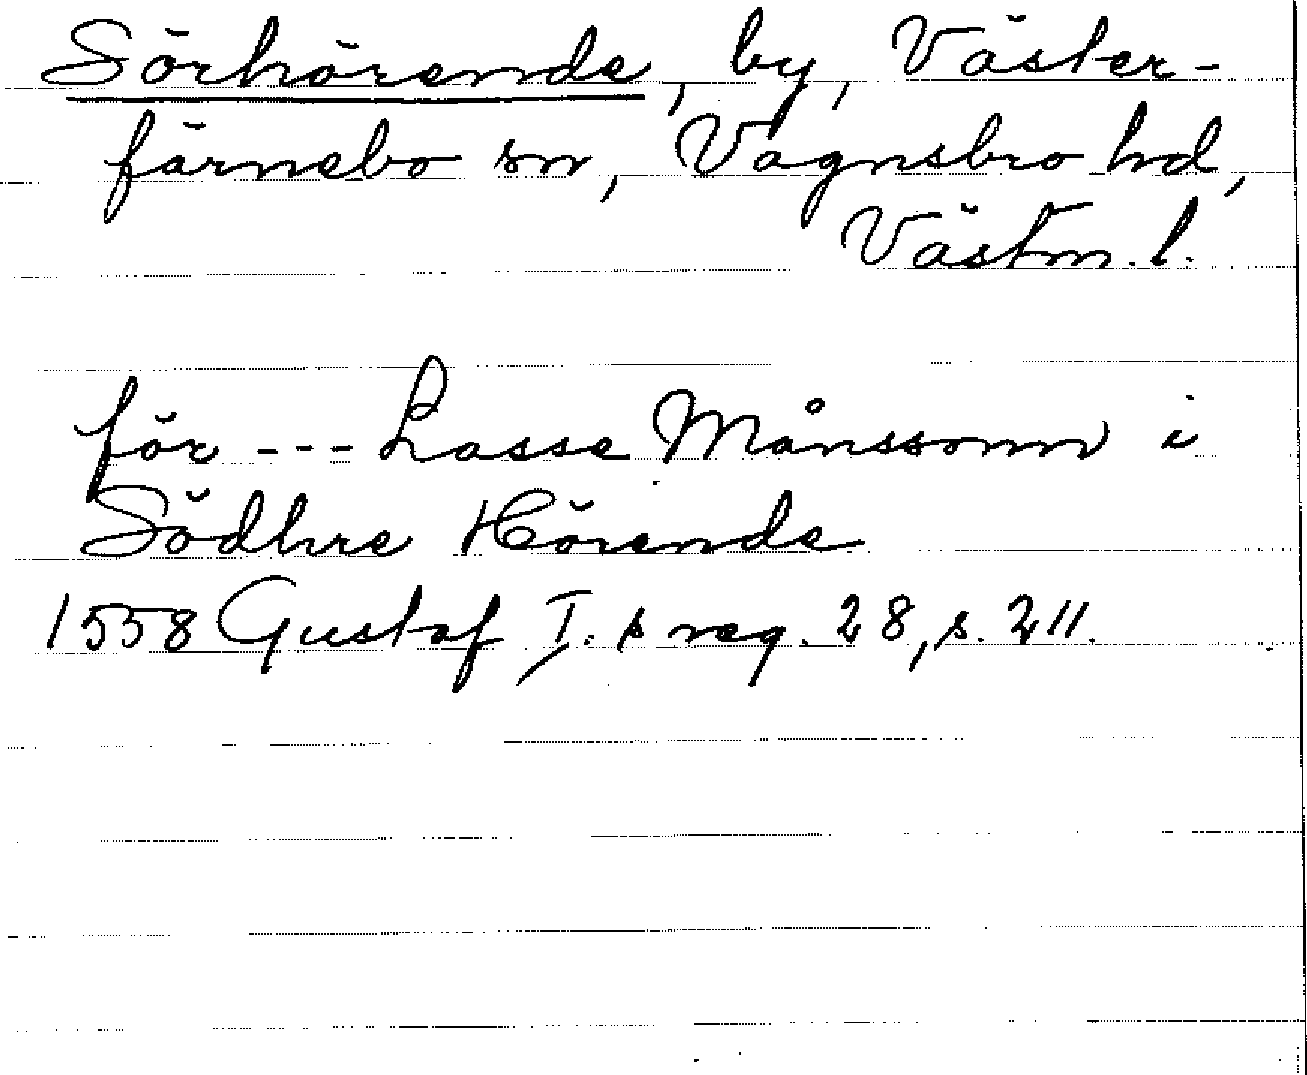 Sörhörende, by, Väster-
färnebo sn, Vagnsbro hd,
Västm. l.
för --- Lasse Månssonn i
Södhre Hörende
1558 Gustaf I:s reg. 28, s. 211.